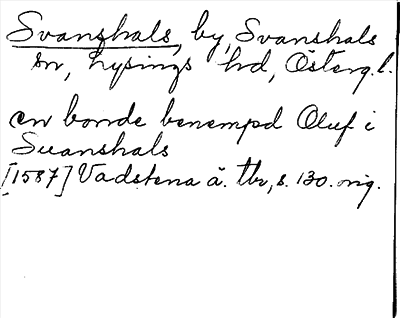 Svanshals, by, Svanshals
sn, Lysings hd, Österg.l.
en bonde benempd Oluf i
Suanshals
[1587] Vadstena ä. tbr, s. 130. orig.